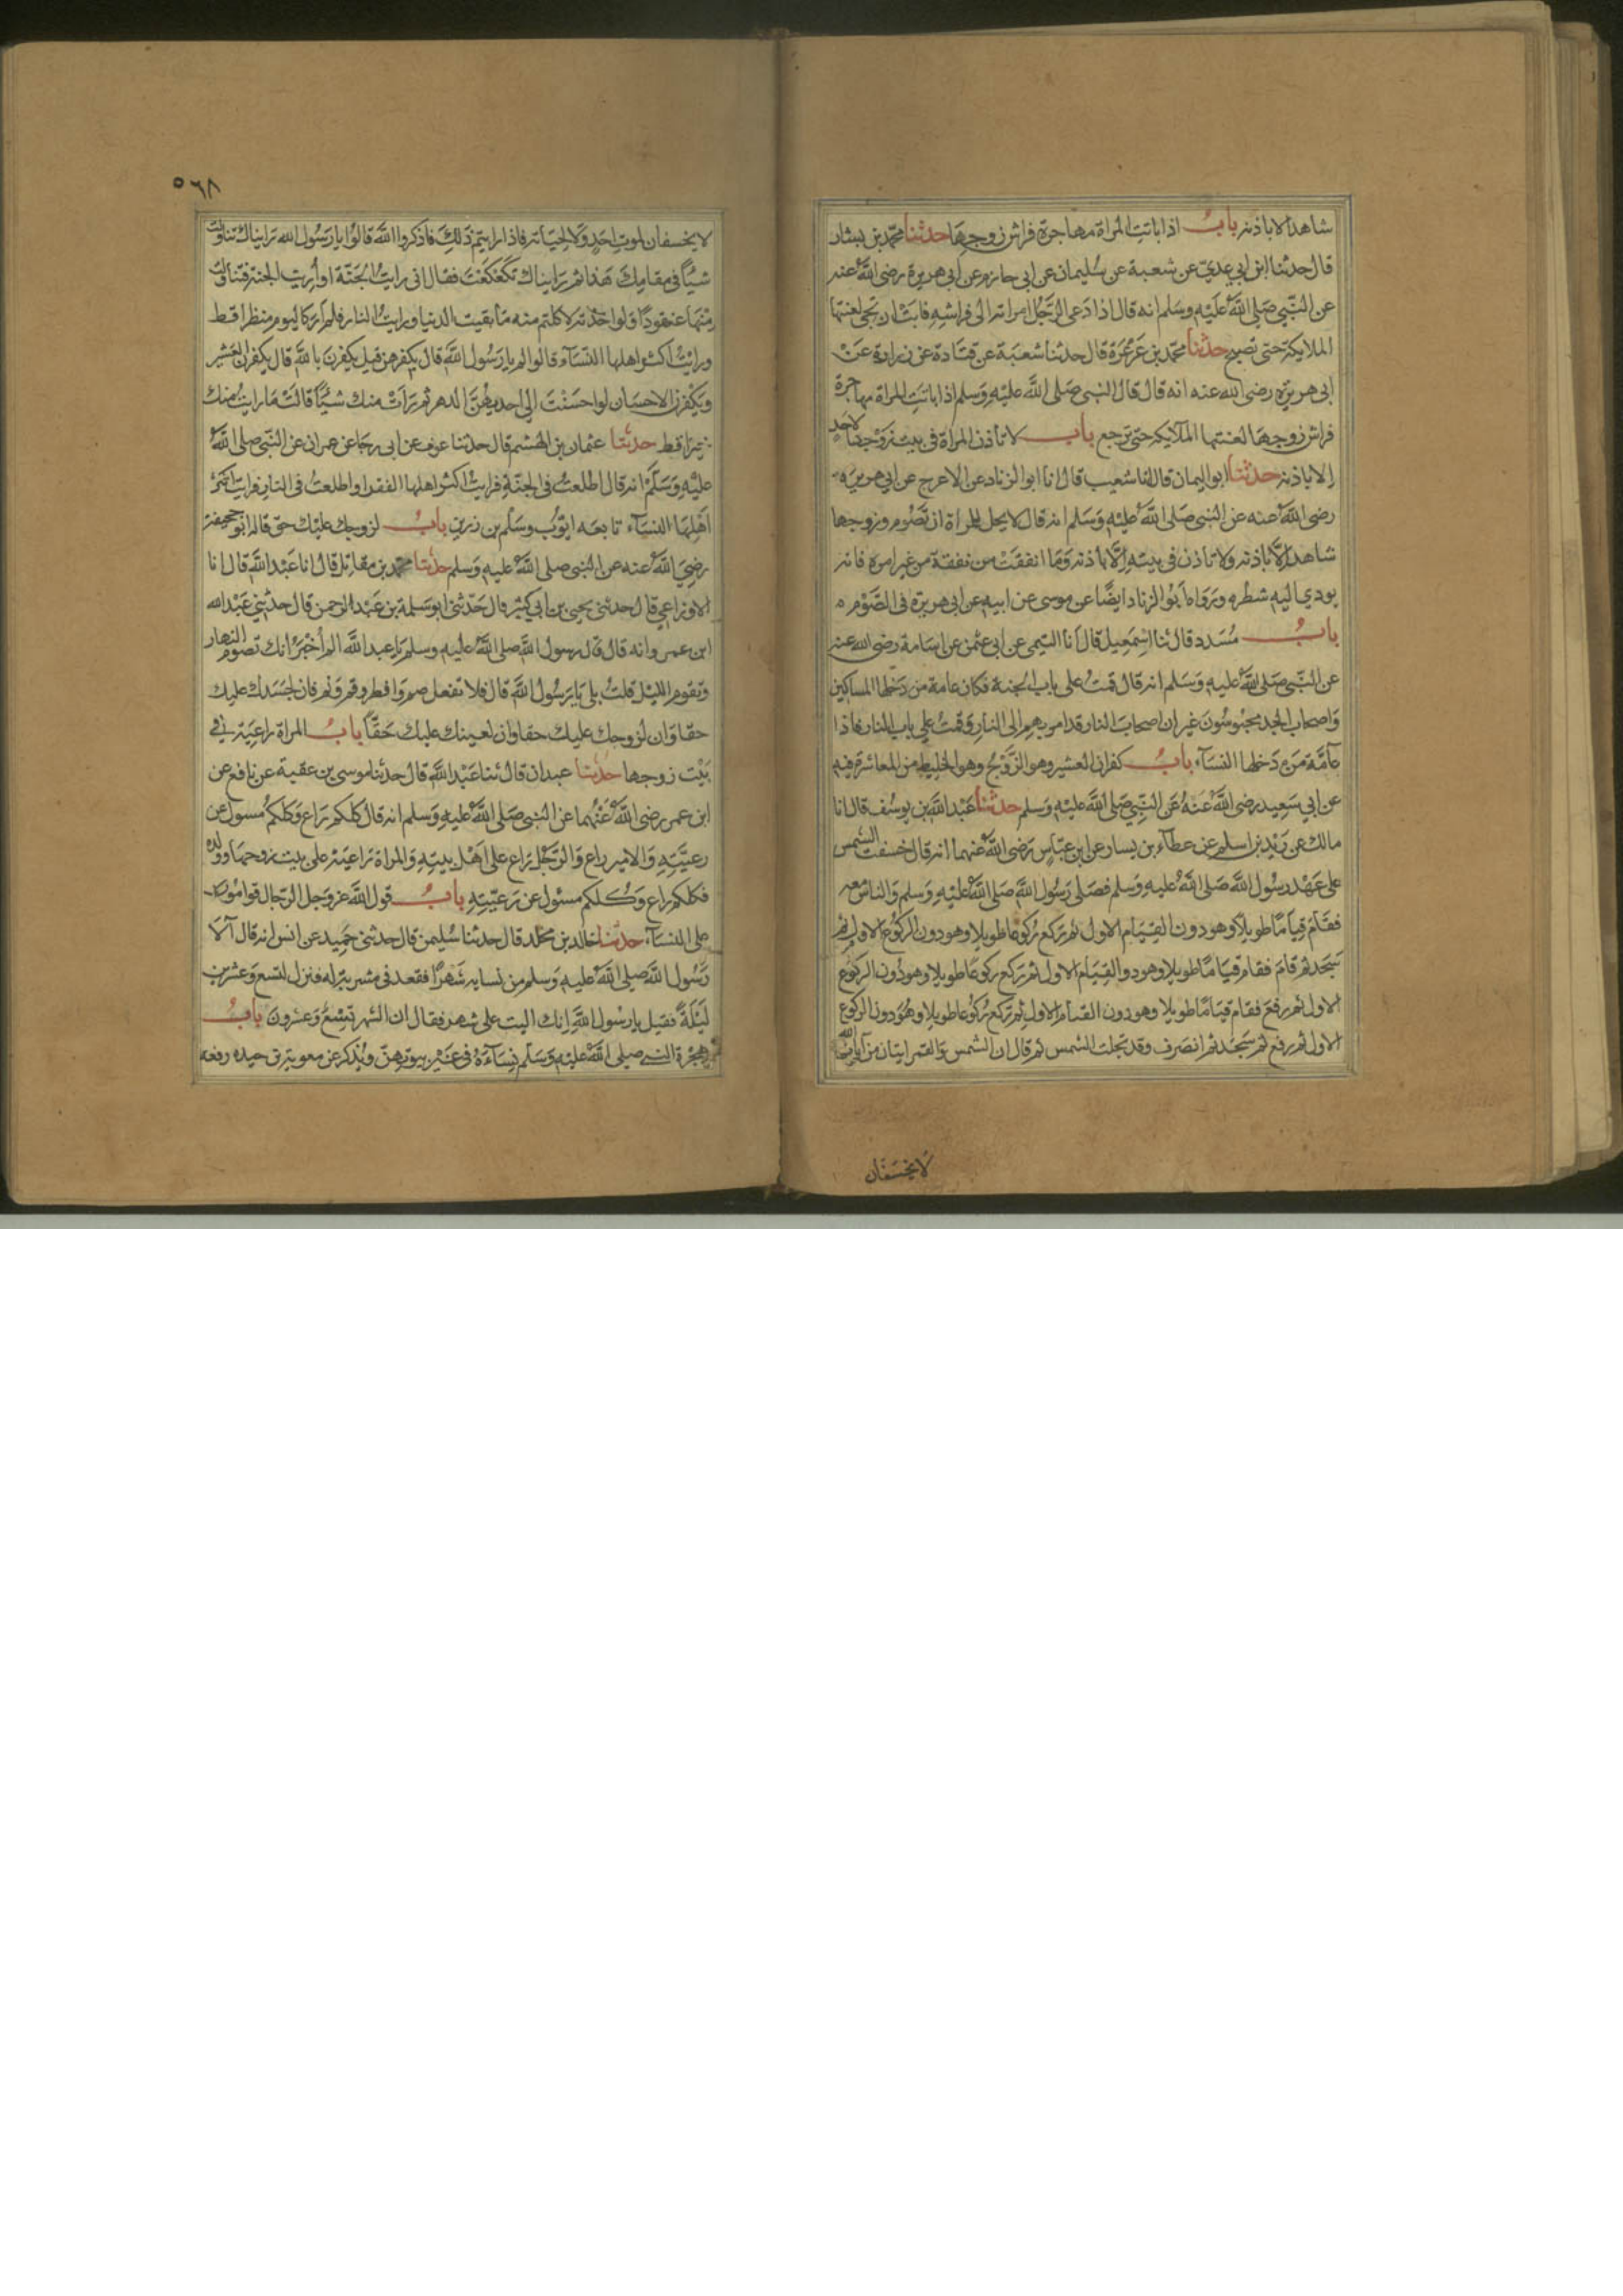 شاهد الا باذنه باب اذا باتت المراة مهاجرة فراش زوجها حدثنا محمد بن بشار
قال حدثنا ابن ابي عدي عن شعبة عن سليمان عن ابي حازم عن ابي هريرة رضي الله عنه
عن النبي صلى الله عليه وسلم انه قال اذا دعى الرجل امراته الى فراشه فابت ان تجئ لعنتها
الملايكة حتى تصبح حدثنا محمد بن عرعرة قال حدثنا شعبة عن قتادة عن زرارة عن
ابي هريرة رضي الله عنه انه قال قال النبي صلى الله عليه وسلم اذا باتت المراة مهاجرة
فراش زوجها لعنتها الملآيكة حتى ترجع باب لا تأذن المراة في بيت زوجها لاحد
الا باذنه حدثنا ابو اليمان قال انا شعيب قال انا ابو الزناد عن الاعرج عن ابي هريرة
رضي الله عنه عن النبي صلى الله عليه وسلم انه قال لا يحل للمراة ان تصوم وزوجها
شاهد الا باذنه ولا تاذن في بيته الا باذنه وما انفقت من نفقة من غير امره فانه
يودي اليه شطره ورواه ابو الزناد ايضا عن موسى عن ابيه عن ابي هريرة في الصوم ه
باب مسدد قال ثنا اسمعيل قال انا التيمي عن ابي عثمن عن اسامة رضي الله عنه
عن النبي صلى الله عليه وسلم انه قال قمت على باب الجنة فكان عامة من دخلها المساكين
واصحاب الجد محبوسون غير ان اصحاب النار قد امر بهم الى النار وقمت على باب النار فاذا
عامة من دخلها النسآء باب كفران العشير وهو الزوج وهو الخليط من المعاشرة فيه
عن ابي سعيد رضي الله عنه عن النبي صلى الله عليه وسلم حدثنا عبد الله بن يوسف قال انا
مالك عن زيد بن اسلم عن عطآء بن يسار عن ابن عباس رضي الله عنهما انه قال خسفت الشمس
على عهد رسول الله صلى الله عليه وسلم فصلى رسول الله صلى الله عليه وسلم والناس معه
فقام قياما طويلا وهو دون القيام الاول ثم ركع ركوعا طويلا وهو دون الركوع الاول ثم
سجد ثم قام فقام قياما طويلا وهو دو القيام الاول ثم ركع ركوعا طويلا وهو دون الركوع
الاول ثم رفع فقام قياما طويلا وهو دون القيام الاول ثم ركع ركوعا طويلا وهو دون الركوع
الاول ثم رفع ثم سجد ثم انصرف وقد تجلت الشمس ثم قال ان الشمس والقمر ايتان من آيات الله
لا يخسفان
٥٦٨
لا يخسفان لموت احد ولا لحياته فاذا رايتم ذلك فاذكروا الله قالوا يا رسول الله رايناك تناولت
شيئا في مقامك هذا ثم رايناك تكعكعت فقال اني رايت الجنة او أريت الجنة فتناولت
منها عنقودا ولو اخذته لاكلتم منه ما بقيت الدنيا ورايت النار فلم ار كاليوم منظرا قط
ورايت اكثر اهلها النسآء قالوا لم يا رسول الله قال بكفرهن قيل يكفرن بالله قال يكفرن العشير
ويكفرن الاحسان لو احسنت الى احديهن الدهر ثم رات منك شيئا قالت ما رايت منك
خيرا قط حدثنا عثمان بن الهيثم قال حدثنا عوف عن ابي رجا عن عمران عن النبي صلى الله
عليه وسلم انه قال اطلعت في الجنة فرايت اكثر اهلها الفقرا واطلعت في النار فرايت اكثر
اهلها النسآء تابعه ايوب وسلم بن زرير باب لزوجك عليك حق قاله ابو جحيفة
رضي الله عنه عن النبي صلى الله عليه وسلم حدثنا محمد بن مقاتل قال انا عبد الله قال انا
الاوزاعي قال حدثني يحيى بن ابي كثير قال حدثني ابو سلمة بن عبد الرحمن قال حدثني عبد الله
ابن عمرو انه قال قال رسول الله صلى الله عليه وسلم يا عبد الله الم أخبر انك تصوم النهار
وتقوم الليل قلت بلى يا رسول الله قال فلا تفعل صم وافطر وقم ونم فان لجسدك عليك
حقا وان لزوجك عليك حقا وان لعينك عليك حقا باب المراة راعية في
بيت زوجها حدثنا عبدان قال ثنا عبد الله قال حدثنا موسى بن عقبة عن نافع عن
ابن عمر رضي الله عنهما عن النبي صلى الله عليه وسلم انه قال كلكم راع وكلكم مسول عن
رعيته والامير راع والرجل راع على اهل بيته والمراة راعية على بيت زوجها وولده
فكلكم راع وكلكم مسئول عن رعيته باب قول الله عز وجل الرجال قوامون
على النسآء حدثنا خالد بن مخلد قال حدثنا سليمن قال حدثني حميد عن انس انه قال آلا
رسول الله صلى الله عليه وسلم من نسايه شهرا فقعد في مشربة له فنزل لتسع وعشرين
ليلة فقيل يا رسول الله انك اليت على شهر فقال ان الشهر تسع وعشرون باب
هجرة النبي صلى الله عليه وسلم نسآءه في غير بيوتهن ويذكر عن معوية بن حيده رفعه